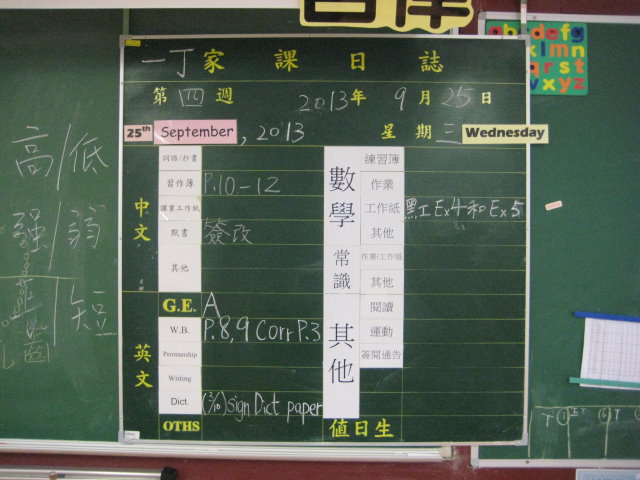 自律
abcdefg
klmn
qrst
vwxyz
一丁家課日誌
第四週 2013年9月25日
25th September, 2013 星期三 Wednesday
高/低
強/弱
長/短
中文
詞語/抄書
習作簿 P.10-12
課業工作紙
默書 簽改
其他
G.E. A
英文
W.B. P.8,9 Corr P.3
Penmanship
Writing
Dict. (2/10) sign Dict paper
OTHS
數學
練習簿
作業
工作紙 黑工 Ex4和Ex5
其他
常識
作業/工作紙
其他
其他
閱讀
運動
簽閱通告
值日生